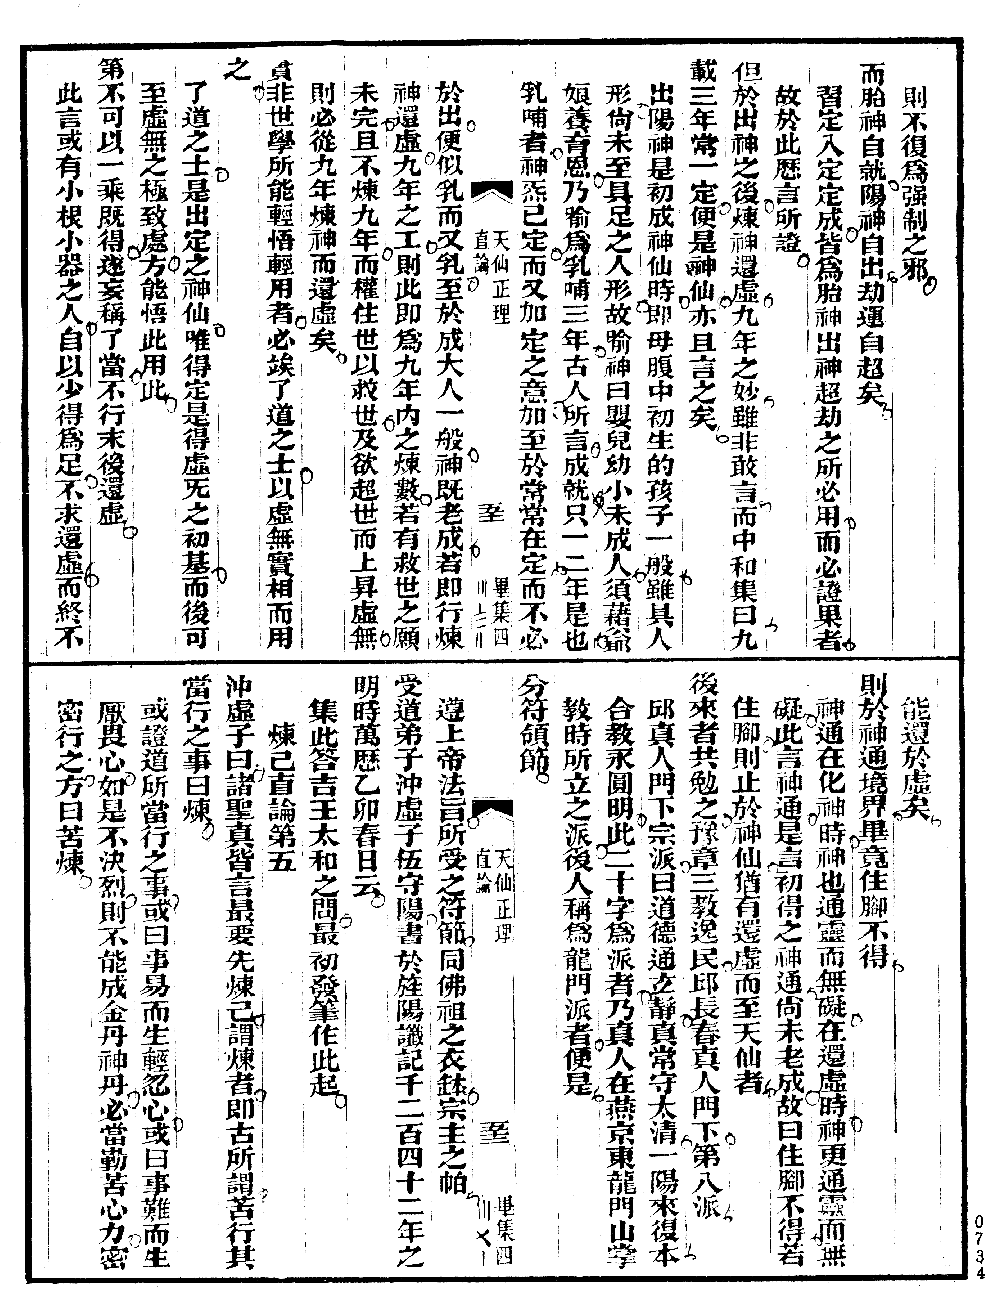 則不復爲强制之邪
而胎神自就陽神自出劫運自超矣
習定入定定成皆爲胎神出神超劫之所必用而必證果者
故於此歷言所證
但於出神之後煉神還虛九年之妙雖非敢言而中和集曰九
載三年常一定便是神仙亦且言之矣
出陽神是初成神仙時即母腹中初生的孩子一般雖具人
形尙未至具足之人形故喻神曰嬰兒幼小未成人須藉爺
娘養育恩乃喻爲乳哺三年古人所言成就只一二年是也
乳哺者神炁已定而又加定之意加至於常常在定而不必
天仙正理
直論
畢集四
於出便似乳而又乳至於成大人一般神既老成若即行煉
神還虛九年之工則此即爲九年內之煉數若有救世之願
未完且不煉九年而權住世以救世及欲超世而上昇虛無
則必從九年煉神而還虛矣
實非世學所能輕悟輕用者必竢了道之士以虛無實相而用
之
了道之士是出定之神仙唯得定是得虛旡之初基而後可
至虛無之極致處方能悟此用此
第不可以一乘既得遂妄稱了當不行末後還虛
此言或有小根小器之人自以少得爲足不求還虛而終不
能還於虛矣
則於神通境界畢竟住腳不得
神通在化神時神也通靈而無礙在還虛時神更通靈而無
礙此言神通是言初得之神通尙未老成故曰住腳不得若
住腳則止於神仙猶有還虛而至天仙者
後來者共勉之豫章三教逸民邱長春真人門下第八派
邱真人門下宗派曰道德通玄靜真常守太清一陽來復本
合教永圓明此二十字爲派者乃真人在燕京東龍門山掌
教時所立之派後人稱爲龍門派者便是
分符領節
天仙正理
直論
畢集四
遵上帝法旨所受之符節同佛祖之衣鉢宗主之帕
受道弟子沖虛子伍守陽書於旌陽讖記千二百四十二年之
明時萬歷乙卯春日云
集此答吉王太和之問最初發筆作此起
煉己直論第五
沖虛子曰諸聖真皆言最要先煉己謂煉者即古所謂苦行其
當行之事曰煉
或證道所當行之事或曰事易而生輕忽心或曰事難而生
厭畏心如是不決烈則不能成金丹神丹必當勤苦心力密
密行之方曰苦煉
0734